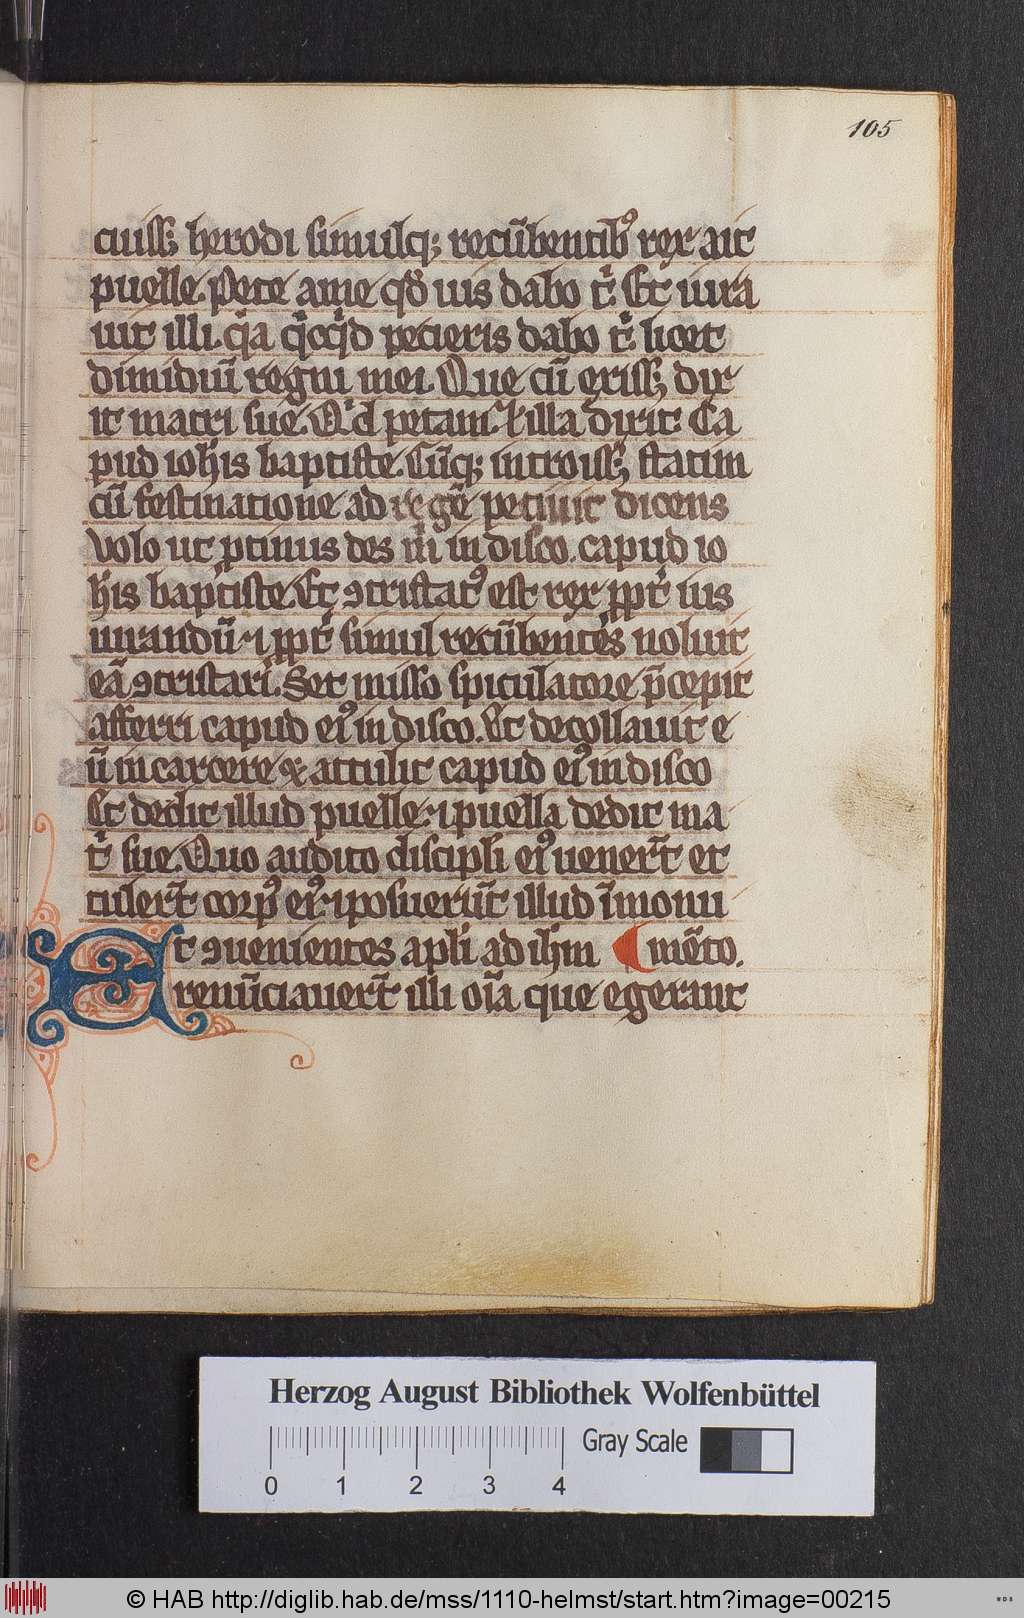 105
cuiss; herodi simulq; recūbentib⁹ rex ait
puelle. Pete a me qd̄ uis dabo t͛. Et iura
uit illi. q̇a q̇cq̇d pecieris dabo t͛ licet
dimidiū regni mei. Que cū exiss; dix
it matri sue. Q͛d petam. ⁊ illa dixit. Ca
pud ioh̄is baptiste. Cūq; introiss; statim
cū festinatione ad regē petiuit dicens
volo ut ꝓtinus des m͛ in disco. capud io
h̄is baptiste. Et ꝯtristat⁹ est rex ꝓpt͛ ius
iurandū. ⁊ ꝓpt͛ simul recūbentes noluit
eā ꝯtristari. Set misso spiculatore p̄cepit
afferri capud ei⁹ in disco. Et decollauit e
ū in carcere ⁊ attulit capud ei⁹ in disco
Et dedit illud puelle. ⁊ puella dedit ma
t͛ sue. Quo audito discipli ei⁹ uenert̄ et
tulert̄ corp⁹ ei⁹. ⁊ posuerūt illud ī monu
Et ꝯuenientes apl̄i ad ih̄m mēto.
renūciauert̄ illi oīa que egerant
Herzog August Bibliothek Wolfenbüttel
0 1 2 3 4
Gray Scale
© HAB http://diglib.hab.de/mss/1110-helmst/start.htm?image=00215